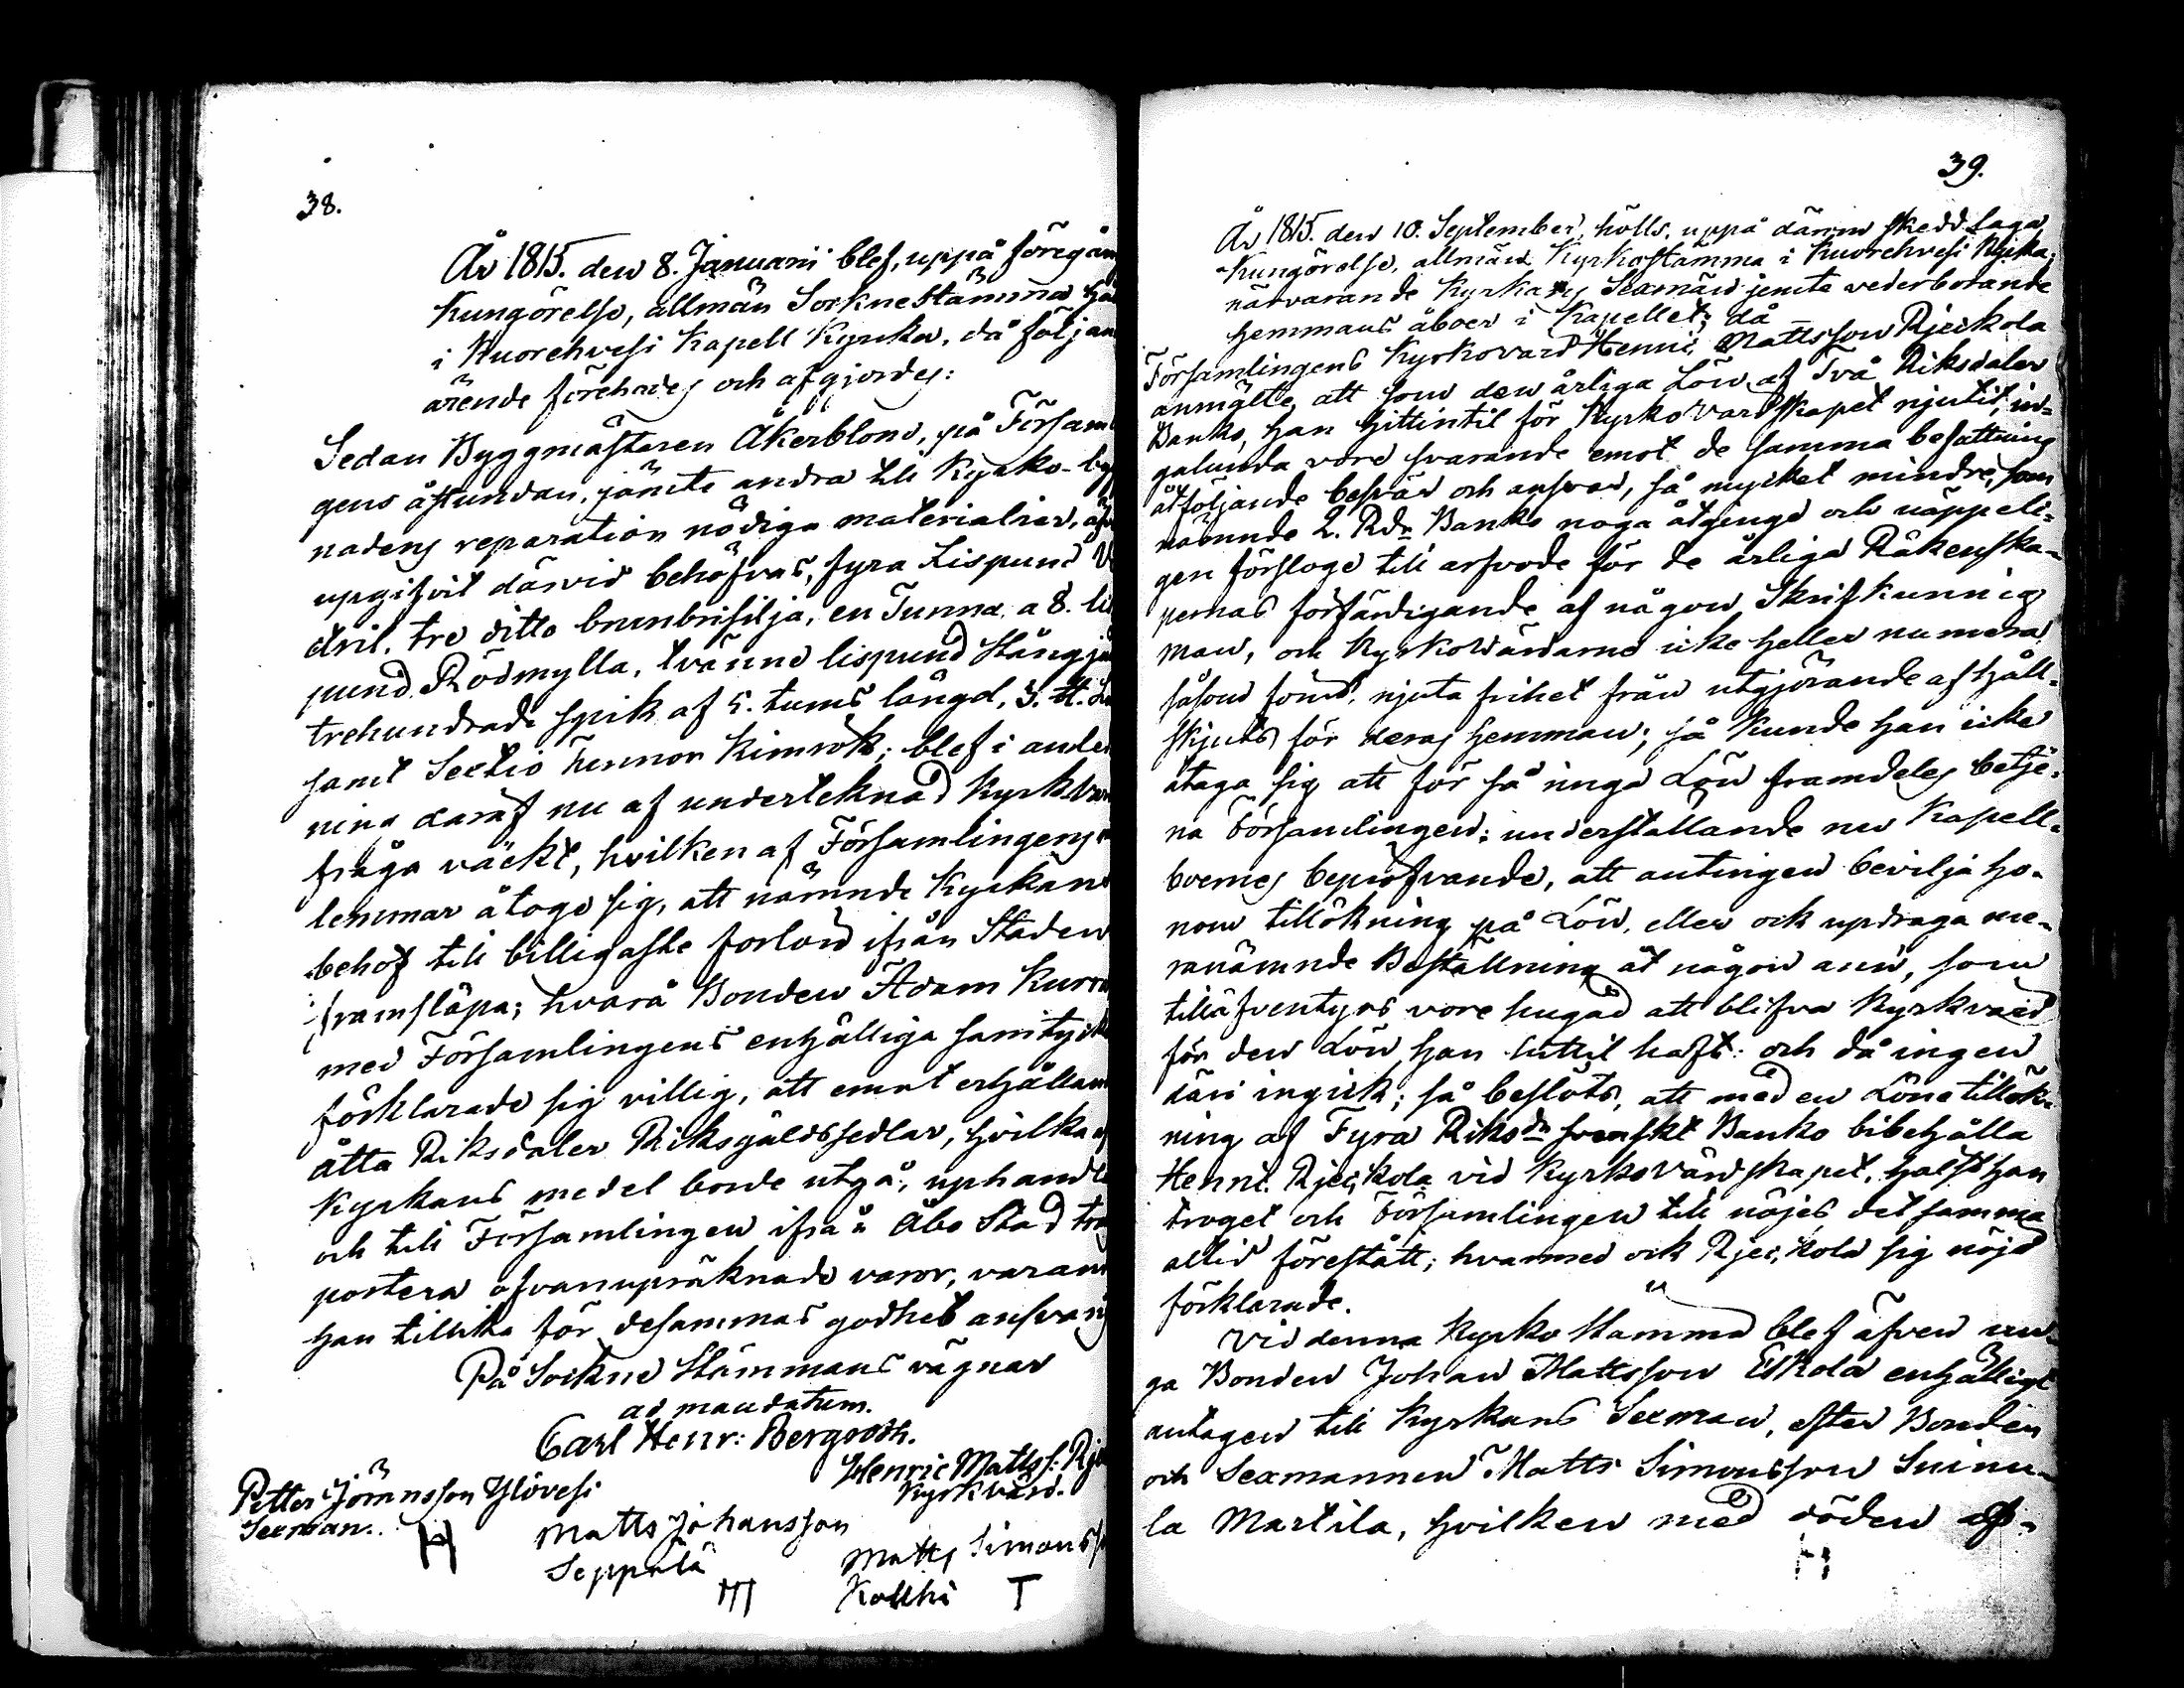 38.
År 1815. den 8. Januarii blef, uppå föregån
Kungörelse, allmän Sockne Stämma hål
i Kuorehvesi Kapell Kyrka, då följan
ärende förehades och afgjordes:
Sedan Byggmästaren Åkerblom, på Församl
gens åstundan, jämte andra till Kyrko-byg
nadens reparation nödiga materialier, äf
upgifvit därvid behöfvas, fyra Lispund
dril, tre ditto brunbrisilja, en Tunna a 8. lis
pund Rödmylla, tvänne lispund Stångjä
trehundrade spik af 5. tums längd, 3. tt.
samt Sextio Tunnor Kimrök; blef i anled
ning däraf nu af undertecknad Kyrkvär
fråga väckt, hvilken af Församlingens
lemmar åtoge sig, att nämnde Kyrkans
behof till billigaste forlön ifrån Staden
framsläpa; hvarå Bonden Adam Kurr
med Församlingens enhälliga samtycke
förklarade sig villig, att emot erhållan
åtta Riksdaler Riksgäldssedlar, hvilka af
Kyrkans medel borde utgå, uphandla
och till Församlingen ifrån Åbo Stad tra
portera ofvanupräknade varor, varan
han tillika för desammas godhet ansvarig
På Sockne Stämmans vägnar
ad mandatum.
Carl Henr: Bergroth.
Henric Matts s: Rje
Kyrkvärd.
Petter Jöransson Ylövesi
Sexman.
H
Matts Johansson
Seppälä
III
Matts Simonss
Kollki T
39.
År 1815. den 10. September, hölls, uppå därom skedd laga
Kungörelse, allmän Kyrkostämma i Kuorehvesi Kyrka,
närvarande Kyrkans Sexmän jemte vederbörande
hemmans åboer i Kapellet; då
Församlingens Kyrkovärd Henric Mattsson Rjeckola
anmälte, att som den årliga Lön af Två Riksdaler
Banko, han hittintil för Kyrko Värdskapet njutit, in-
galunda vore svarande emot de samma befattning
åtföljande besvär och ansvar, så mycket mindre, som
nämnde 2. Rdr Banko noga åtginge och näppeli-
gen försloge till arfvode för de årliga Räkenska-
pernas förfärdigande af någon Skrifkunnig
man, och Kyrkovärdarne icke heller numera
såsom förut, njuta frihet från utgjörande af Håll-
skjuts för deras hemman; så kunde han icke
åtaga sig att för så ringa Lön framdeles betje-
na Församlingen; understållande nu Kapell-
boernes bepröfvande, att antingen bevilja ho-
nom tillökning på Lön, eller ock updraga me-
ranämnde Beställning åt någon ann, som
tilläfventyrs vore hugad att blifva Kyrkvärd
för den Lön han hittil haft: och då ingen
däri ingick; så beslöts, att med en Lönetillök-
ning af Fyra Riksdr svenskt Banko bibehålla
Henric Rjeckola vid Kyrko Värdskapet, hälst han
troget och Församlingen till nöjes det samma
altid förestått; hvarmed ock Rjeckola sig nöjd
förklarade.
Vid denna Kyrko Stämma blef äfven un-
ga Bonden Johan Mattsson Eskola enhälligt
antagen till Kyrkans Sexman, efter Bonden
och Sexmannen Matts Simonsson Suinu-
la Martila, hvilken med döden af-
H